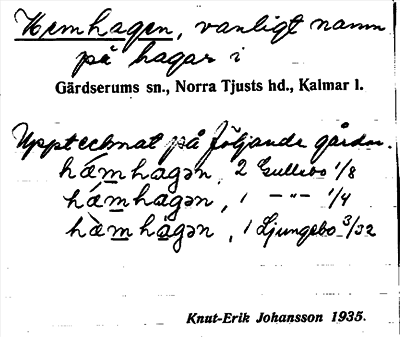 Hemhagen, vanligt namn
på hagar i
Gärdserums sn., Norra Tjusts hd., Kalmar l.
Upptecknat på följande gårdar.
hǽm̲hagən, 2 Gullebo 1/8
hǽm̲hagən, 1 -"- 1/4
hæ̀m̲ha̲gən, 1 Ljungebo 3/32
Knut-Erik Johansson 1935.